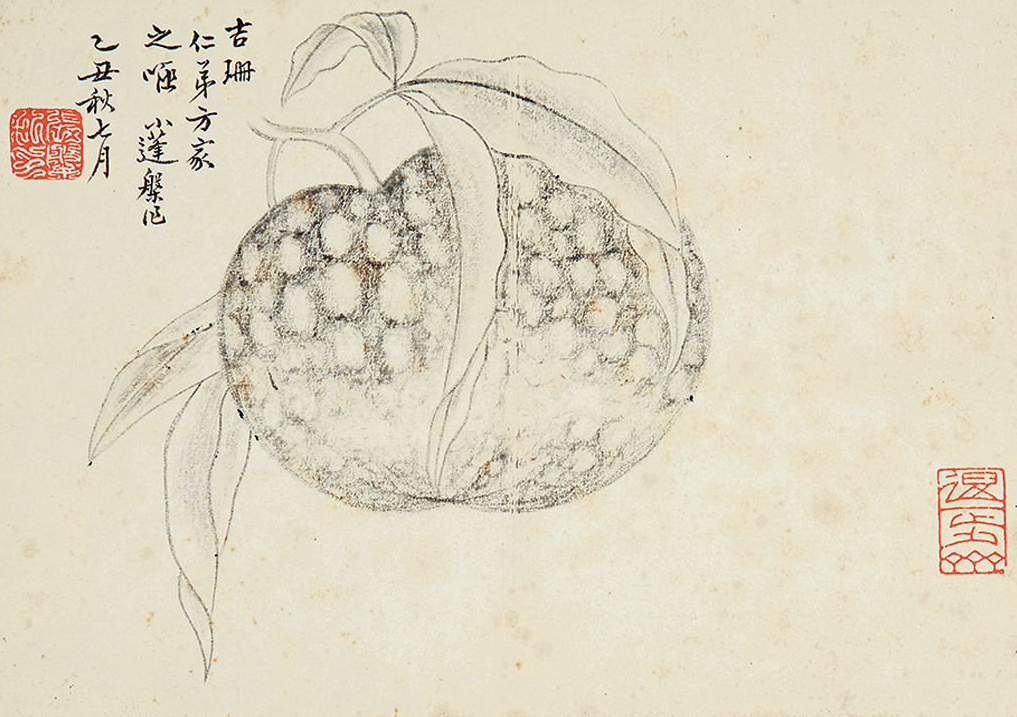 吉珊
仁弟方家
之 小蓬槃作
乙丑秋七月